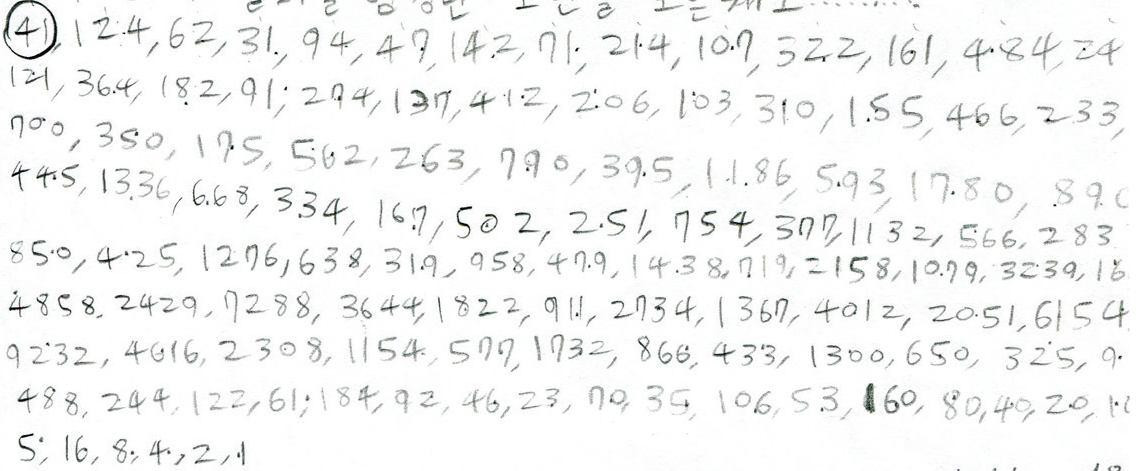 41, 124, 62, 31, 94, 47, 142, 71, 214, 107, 322, 161, 484, 24
121, 364, 182, 91, 274, 137, 412, 206, 103, 310, 155, 466, 233,
700, 350, 175, 502, 263, 790, 395, 1186, 593, 1780, 890
445, 1336, 668, 334, 167, 502, 251, 754, 377, 1132, 566, 283
850, 425, 1276, 638, 319, 958, 479, 1438, 719, 2158, 1079, 3239, 16
4858, 2429, 7288, 3644, 1822, 911, 2734, 1367, 4012, 2051, 6154
9232, 4616, 2308, 1154, 577, 1732, 866, 433, 1300, 650, 325, 9
488, 244, 122, 61, 184, 92, 46, 23, 70, 35, 106, 53, 160, 80, 40, 20, 10
5, 16, 8, 4, 2, 1